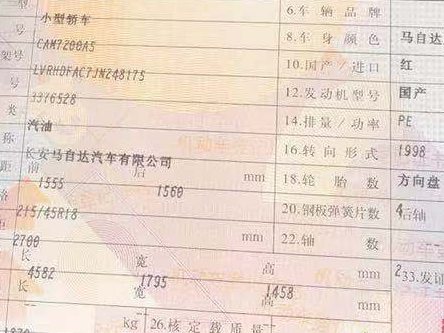 型 小型轿车 6.车辆品牌
号 CAM7200A5 8.车身颜色 马自达
架号 LVRHDFAC7JN248175 10.国产/进口 红
号 3376528 12.发动机型号 国产
类 汽油 14.排量/功率 PE
称 长安马自达汽车有限公司 16.转向形式 1998
距 前 1555 后 1560 mm 18.轮胎数 方向盘
格 215/45R18 20.钢板弹簧片数 4
2700 mm 22.轴数 后轴
长 4582 宽 1795 高 1458 mm 2 33.发证
长 宽 高 mm
1870 kg 26.核定载质量